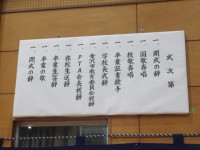 式次第
一 開式の辞
一 国歌斉唱
一 校歌斉唱
一 卒業証書授与
一 学校長式辞
一 金沢市教育委員会祝辞
一 PTA会長祝辞
一 在校生送辞
一 卒業生答辞
一 卒業の歌
一 閉式の辞